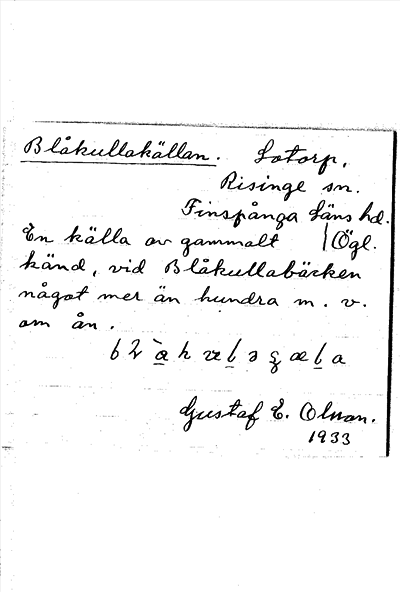 Blåkullakällan. Lotorp,
Risinge sn.
Finspånga läns hd.
En källa av gammalt | Ögl.
känd, vid Blåkullabäcken
något mer än hundra m. v.
om ån.
Gustaf E. Olsson.
1933